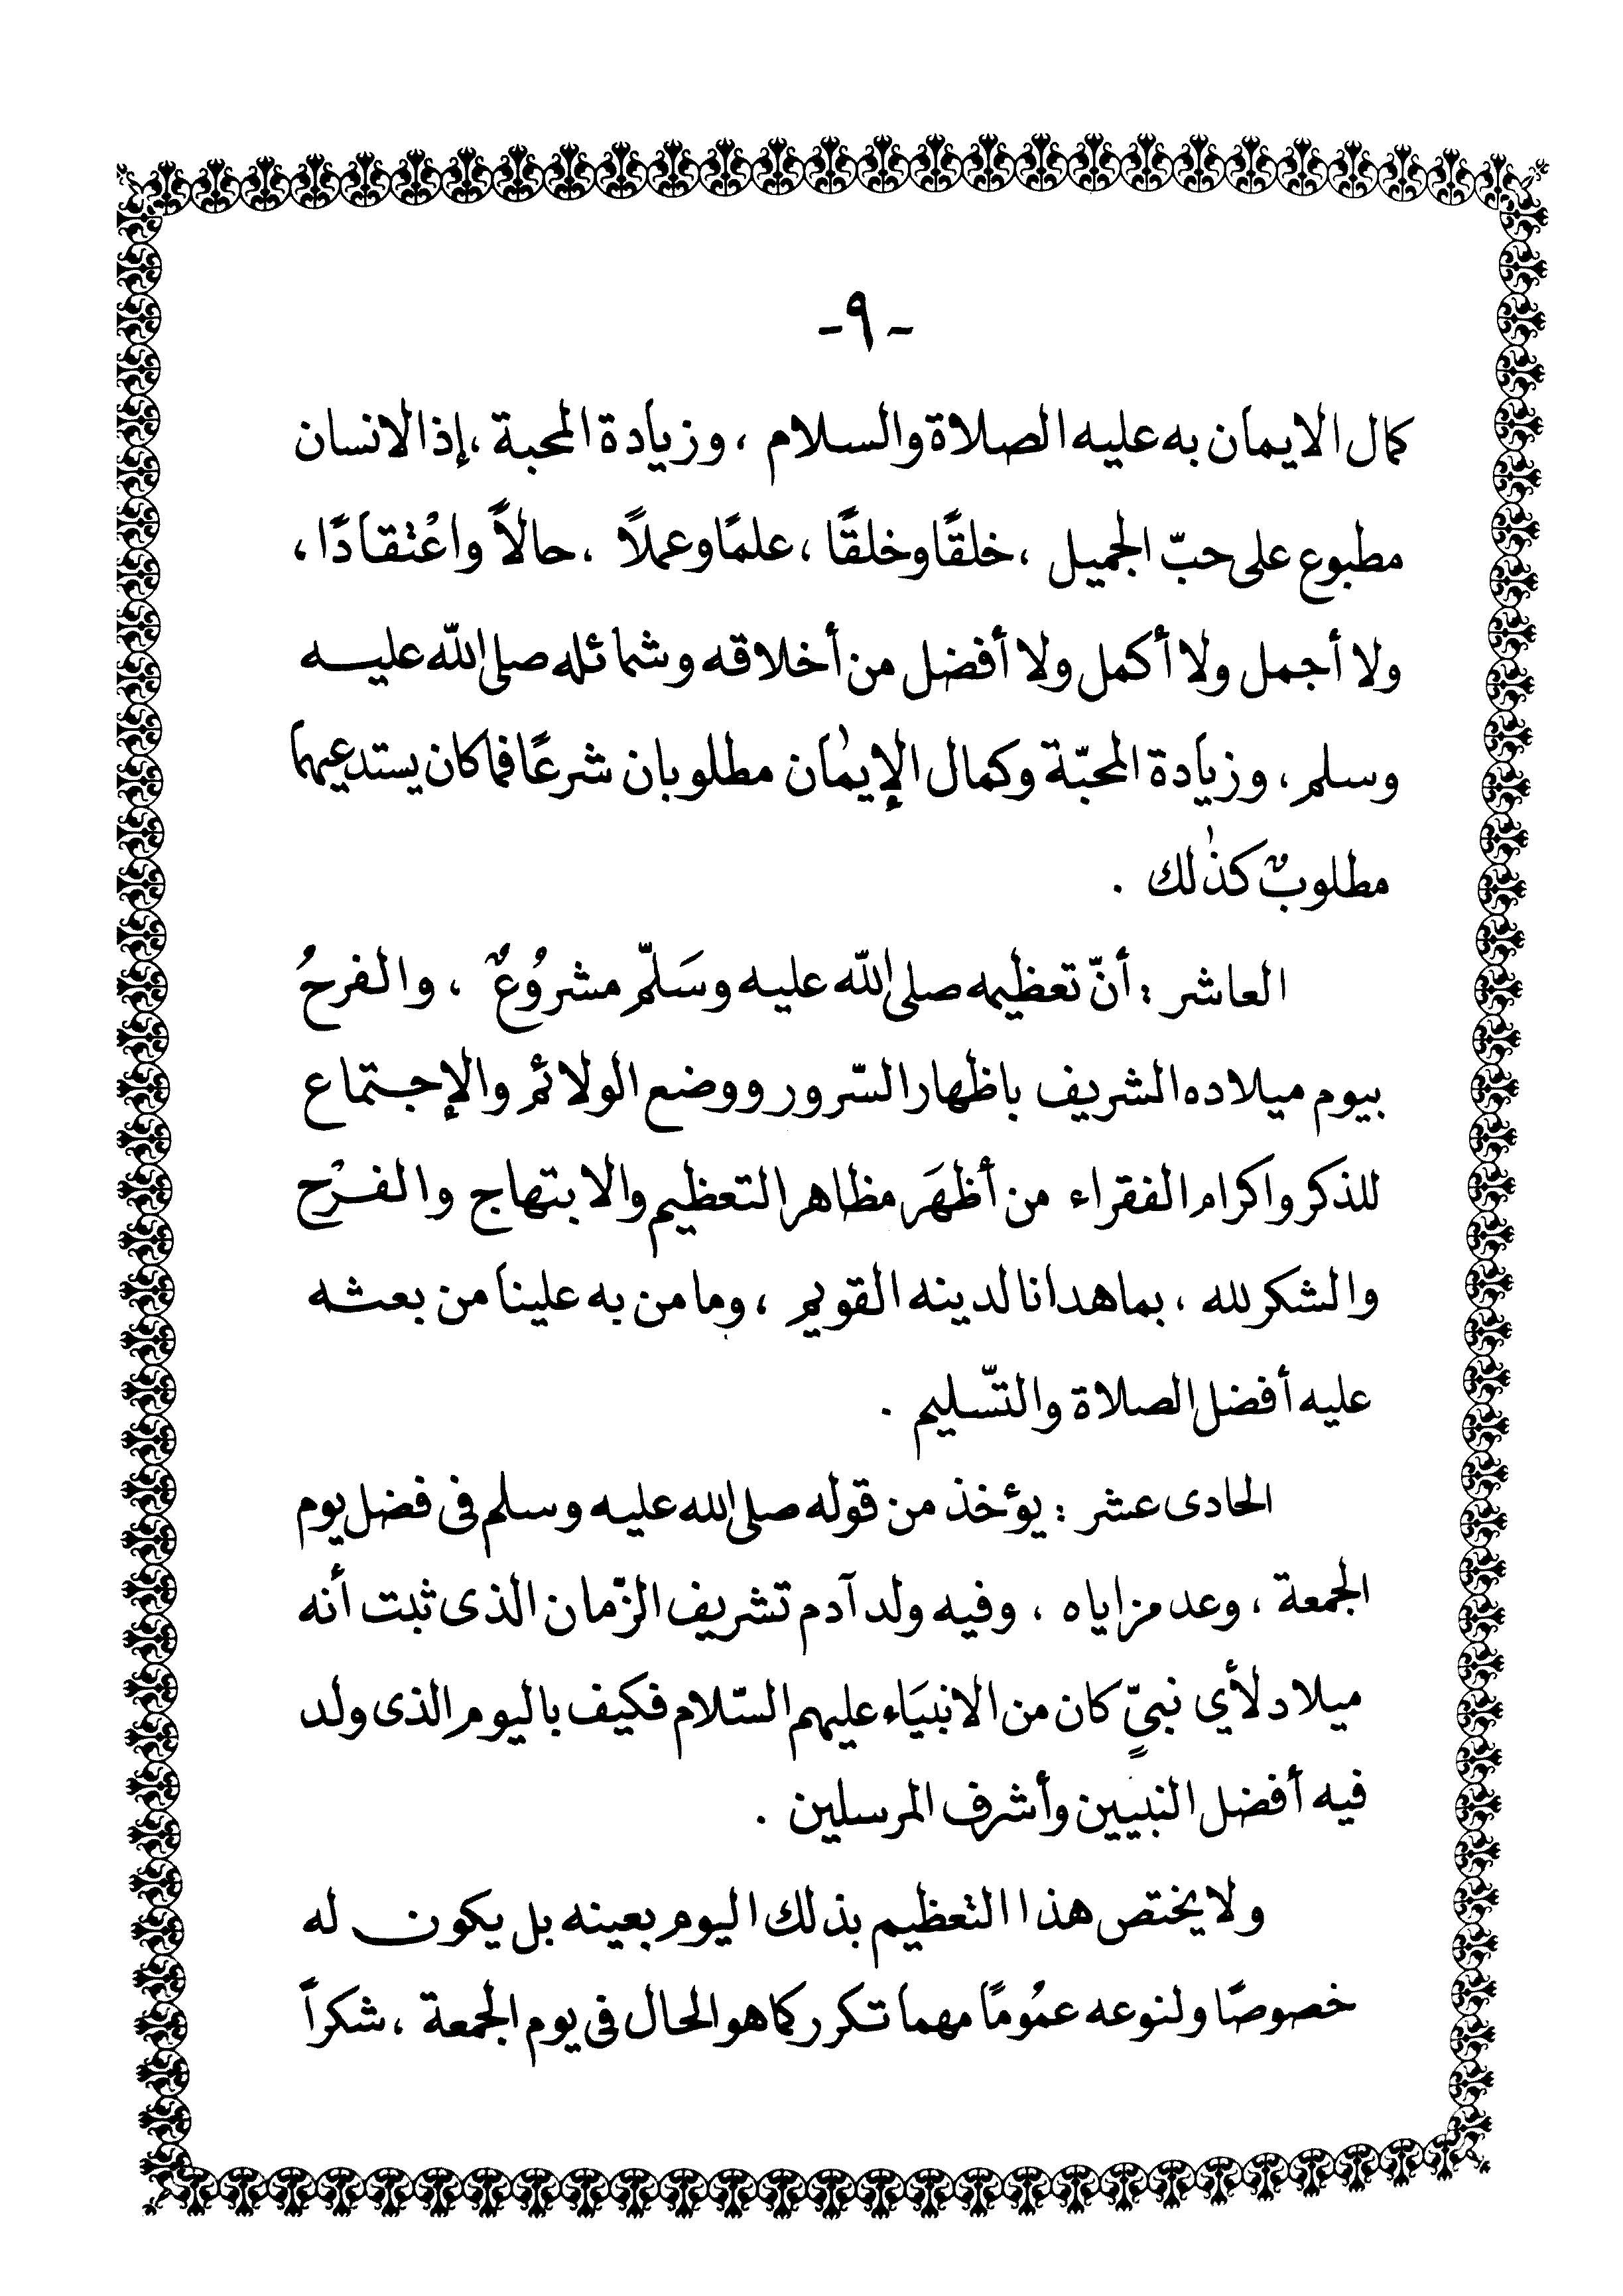 -٩-
كمال الايمان به عليه الصلاة والسلام ، وزيادة المحبة ، إذ الانسان
مطبوع على حبّ الجميل ، خلقًا وخلقًا ، علمًا وعملاً ، حالاً واعْتقادًا ،
ولا أجمل ولا أكمل ولا أفضل من أخلاقه وشمائله صلى الله عليه
وسلم ، وزيادة المحبّة وكمال الإيمٰان مطلوبان شرعًا فما كان يستدعيهما
مطلوبٌ كذٰلك .
العاشر : أنّ تعظيمه صلى الله عليه وسَلّم مشروُعٌ ، والفرحُ
بيوم ميلاده الشريف باظهار السّرور ووضع الولائم والإجتماع
للذكر واكرام الفقراء من أظهَر مظاهر التعظيم والابتهاج والفرْح
والشكر لله ، بما هدانا لدينه القويم ، وما من به علينا من بعثه
عليه أفضل الصلاة والتّسليم .
الحادى عشر : يؤخذ من قوله صلى الله عليه وسلم فى فضل يوم
الجمعة ، وعد مزاياه ، وفيه ولد آدم تشريف الزّمان الذى ثبت أنه
ميلاد لأي نبيّ كان من الانبيَاء عليهم السّلام فكيف باليوم الذى ولد
فيه أفضل النبيين وأشرف المرسلين .
ولا يختص هذا التعظيم بذلك اليوم بعينه بل يكون له
خصوصًا ولنوعه عمُومًا مهما تكرر كما هو الحال فى يوم الجمعة ، شكراً